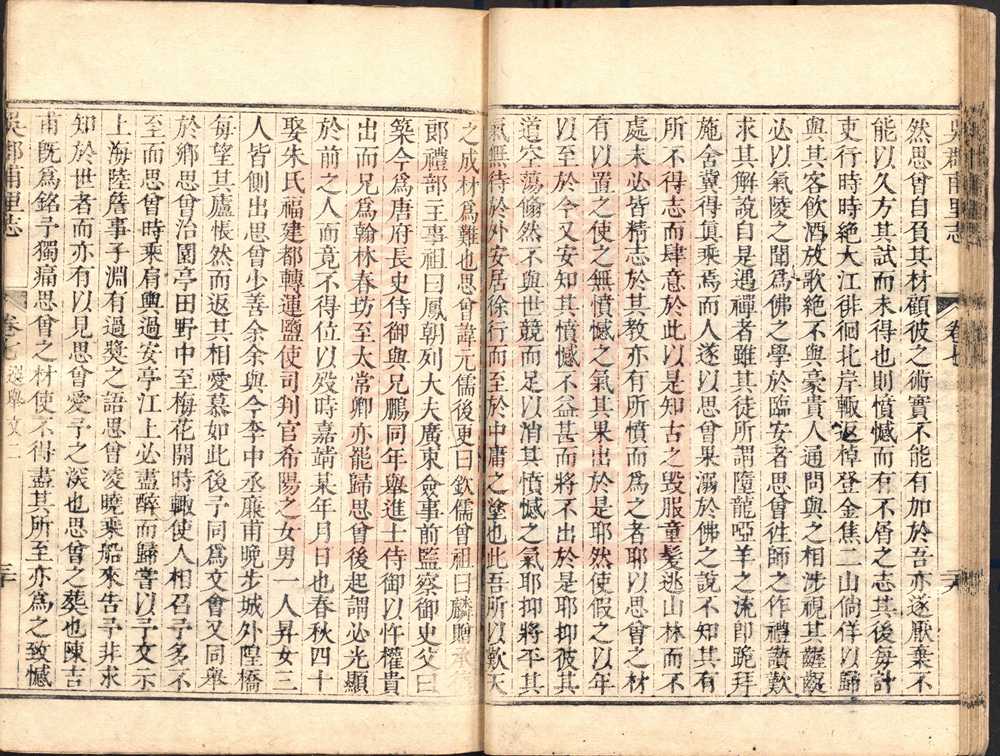 吳郡甫里志 卷七 六
然思曾自負其材顧彼之術實不能有加於吾亦遂厭棄不
能以久方其試而未得也則憤憾而有不屑之志其後每計
吏行時時絕大江徘徊北岸輙返棹登金焦二山倘佯以歸
與其客飲酒放歌絕不與豪貴人通問與之相涉視其齷齪
必以氣陵之聞為佛之學於臨安者思曾徃師之作禮讚歎
求其解說自是遇禪者雖其徒所謂隨龍啞羊之流卽跪拜
施舍冀得眞乘焉而人遂以思曾果溺於佛之說不知其有
所不得志而肆意於此以是知古之毀服童髮逃山林而不
處未必皆精志於其教亦有所憤而為之者耶以思曾之材
有以置之使之無憤憾之氣其果出於是耶然使假之以年
以至於今又安知其憤憾不益甚而將不出於是耶抑彼其
道空蕩翛然不與世競而足以消其憤憾之氣耶抑將平其
氣無待於外安居徐行而至於中庸之塗也此吾所以歎天
之成材為難也思曾諱元儒後更曰欽儒曾祖曰麟贈承
郎禮部主事祖曰鳳朝列大夫廣東僉事前監察御史父曰
築今為唐府長史侍御與兄鵬同年舉進士侍御以忤權貴
出而兄為翰林春坊至太常卿亦罷歸思曾後起謂必光顯
於前之人而竟不得位以殁時嘉靖某年月日也春秋四十
娶朱氏福建都轉運鹽使司判官希陽之女男一人昇女三
人皆側出思曾少善余余與今李中丞廉甫晚步城外隍橋
每望其廬悵然而返其相愛慕如此後予同為文會又同舉
於鄉思曾治園亭田野中至梅花開時輙使人相召予多不
至而思曾時乘肩輿過安亭江上必盡醉而歸嘗以予文示
上海陸詹事子淵有過獎之語思曾凌曉乘船來告予非求
知於世者而亦有以見思曾愛予之深也思曾之葬也陳吉
甫旣為銘予獨痛思曾之材使不得盡其所至亦為之致憾
吳郡甫里志 卷七 選舉文二